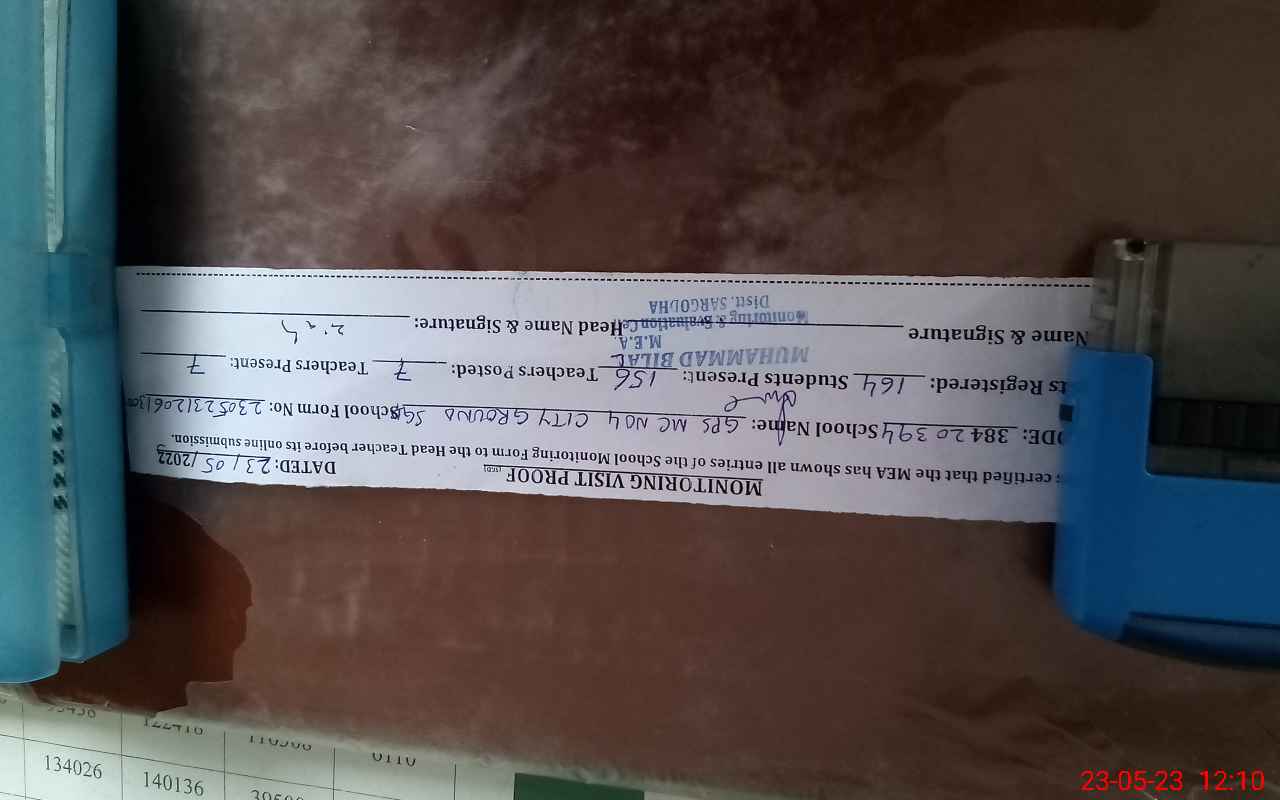 MONITORING VISIT PROOF
DATED: 23/05/2023
s certified that the MEA has shown all entries of the School Monitoring Form to the Head Teacher before its online submission.
ODE: 38420394 School Name: GPS MC NO4 CITY GROUND SGD School Form No: 23052312061300
ts Registered: 164 Students Present: 156 Teachers Posted: 7 Teachers Present: 7
Name & Signature Head Name & Signature:
MUHAMMAD BILAL
M.E.A
Monitoring & Evaluation Cell
Distt. SARGODHA
134026 140136
23-05-23 12:10